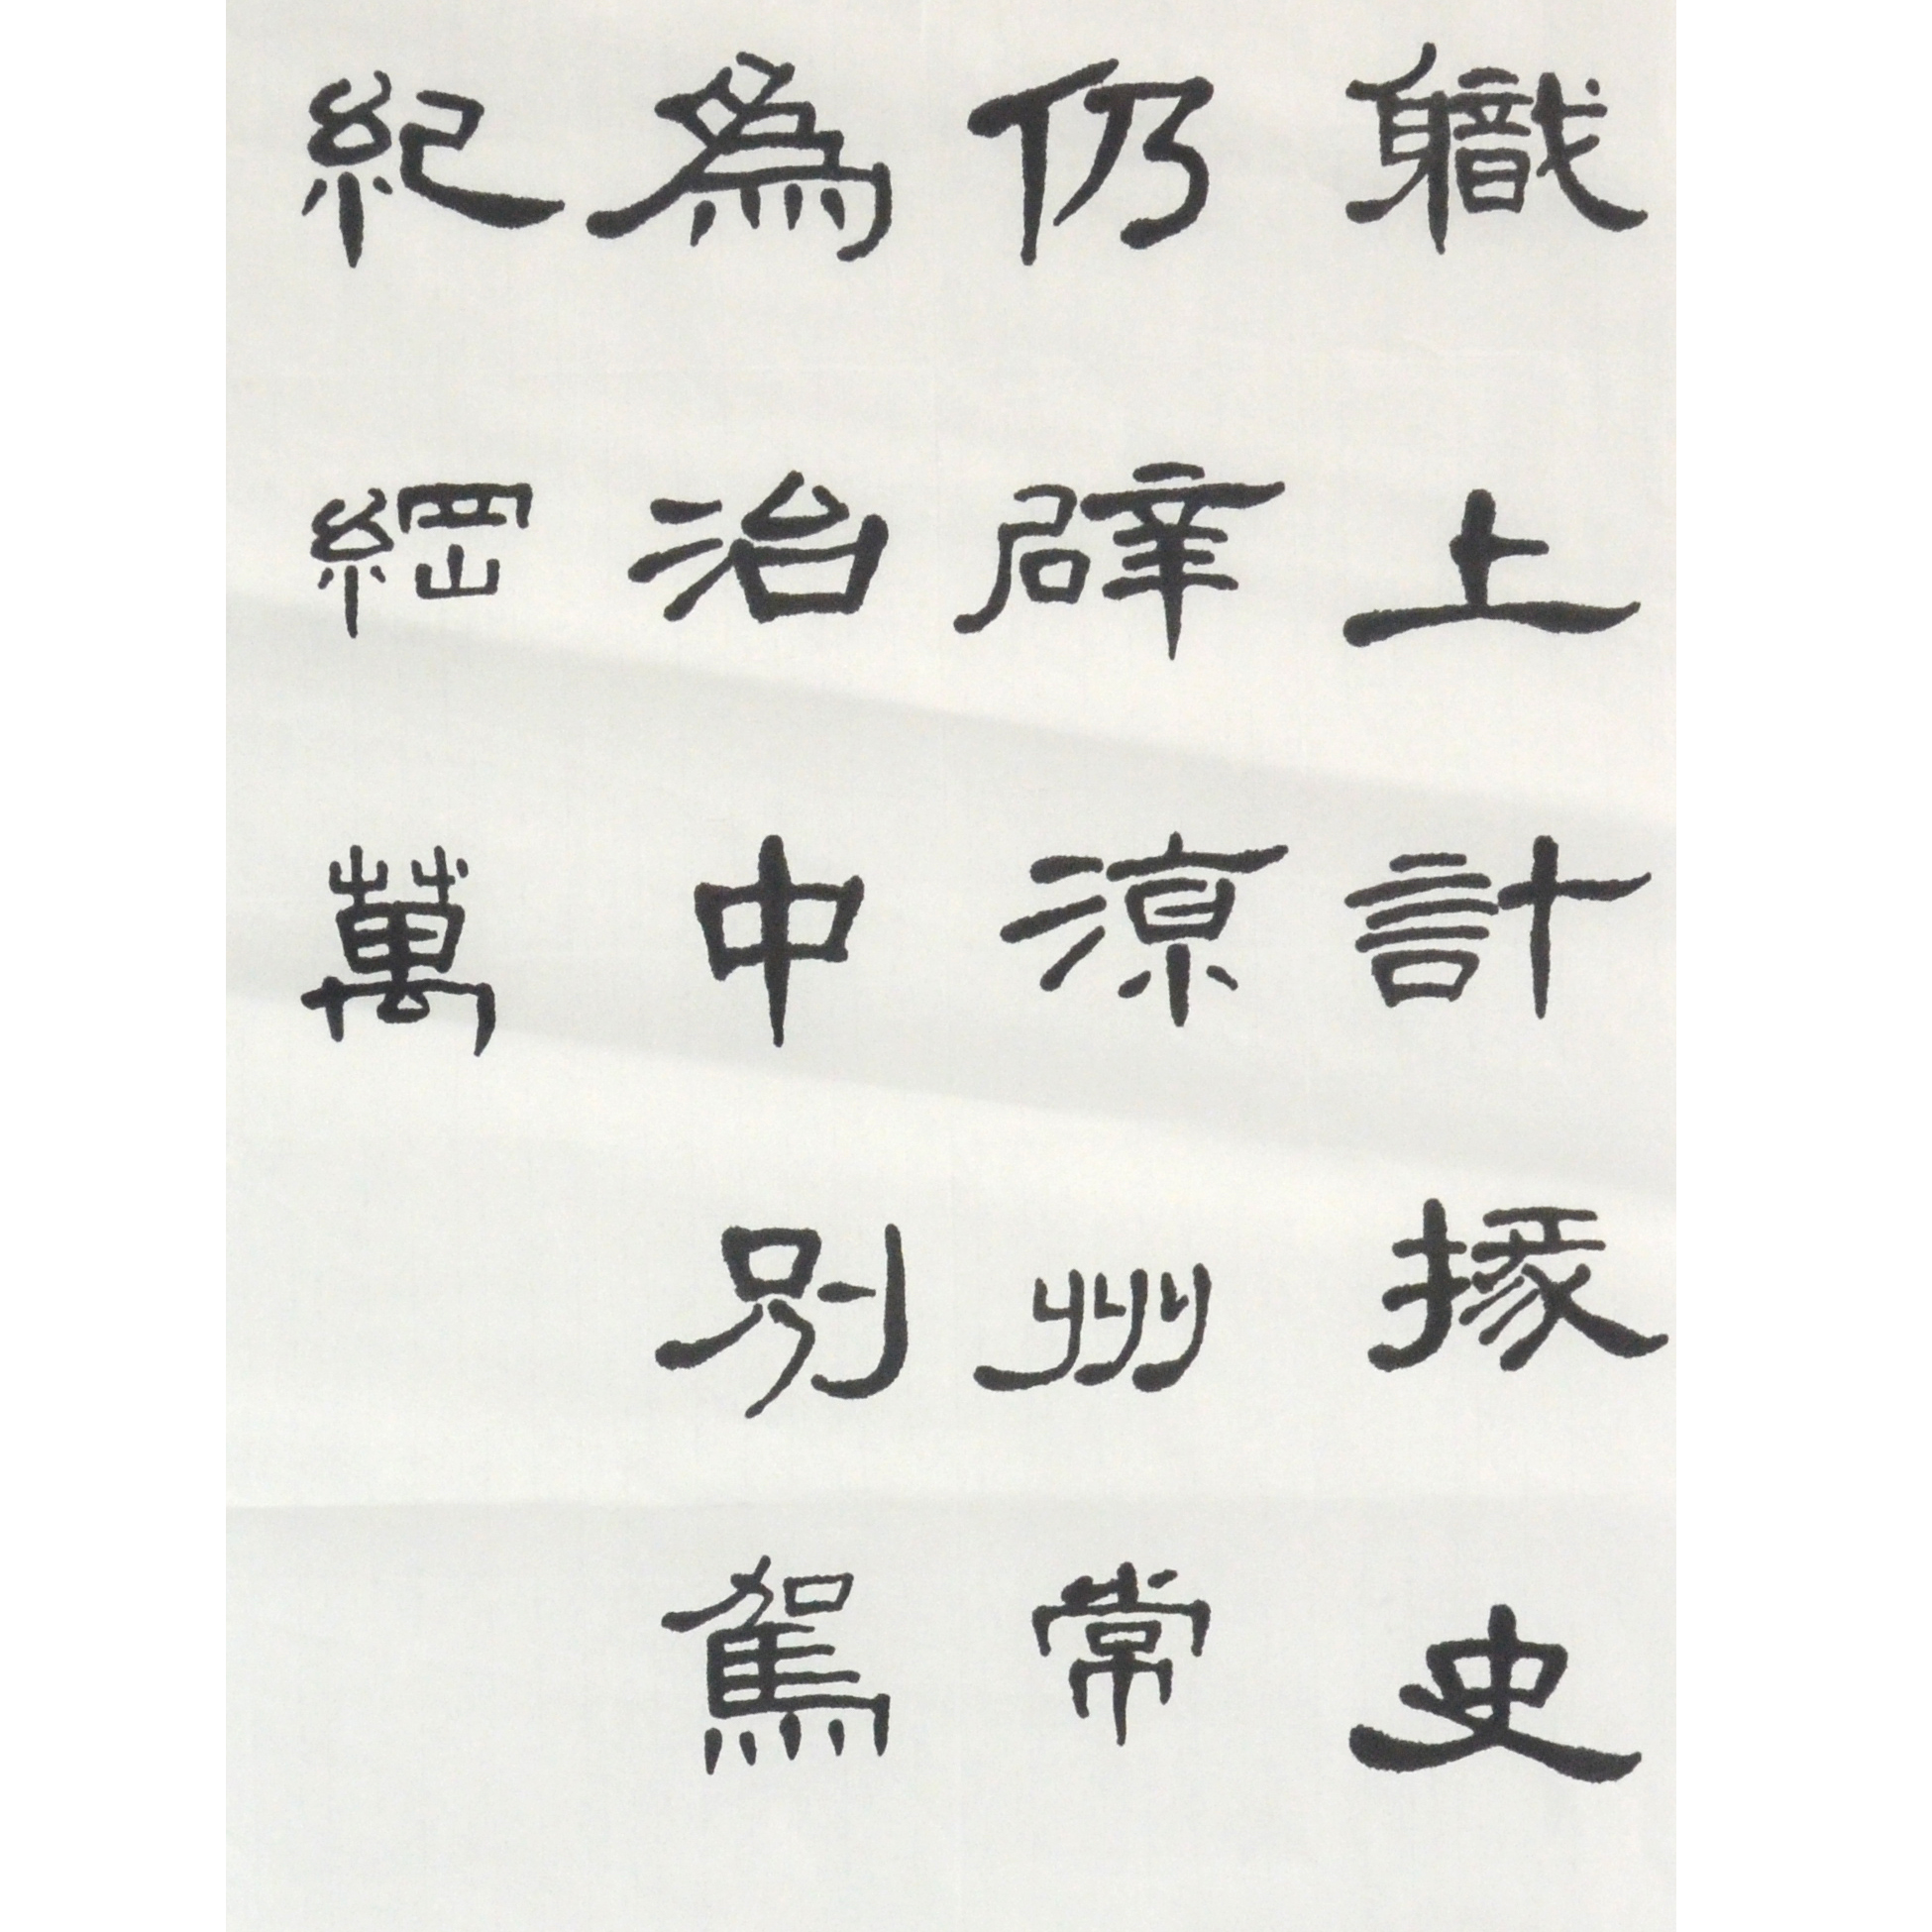 軄上計掾史
仍辟涼州常
為治中別駕
紀綱萬